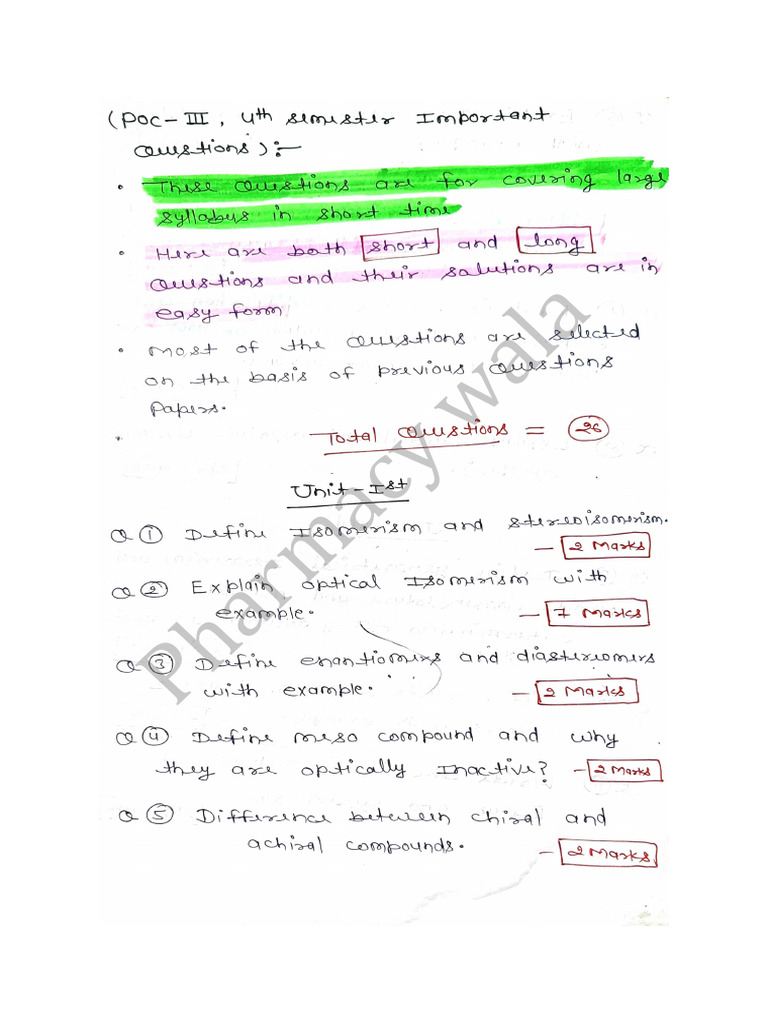 (POC-III, 4th semester Important
Questions):-
• These Questions are for covering large
syllabus in short time
• Here are both short and long
Questions and their solutions are in
easy form
• Most of the Questions are selected
on the basis of previous Questions
Papers.
• Total Questions = 26
Unit-Ist
Q ① Define Isomerism and stereoisomerism.
- 2 Marks
Q ② Explain optical Isomerism with
example. - 7 Marks
Q ③ Define enantiomers and diastereomers
with example. - 2 Marks
Q ④ Define meso compound and why
they are optically Inactive? - 2 Marks
Q ⑤ Difference between chiral and
achiral compounds. - 2 Marks
Pharmacy wala